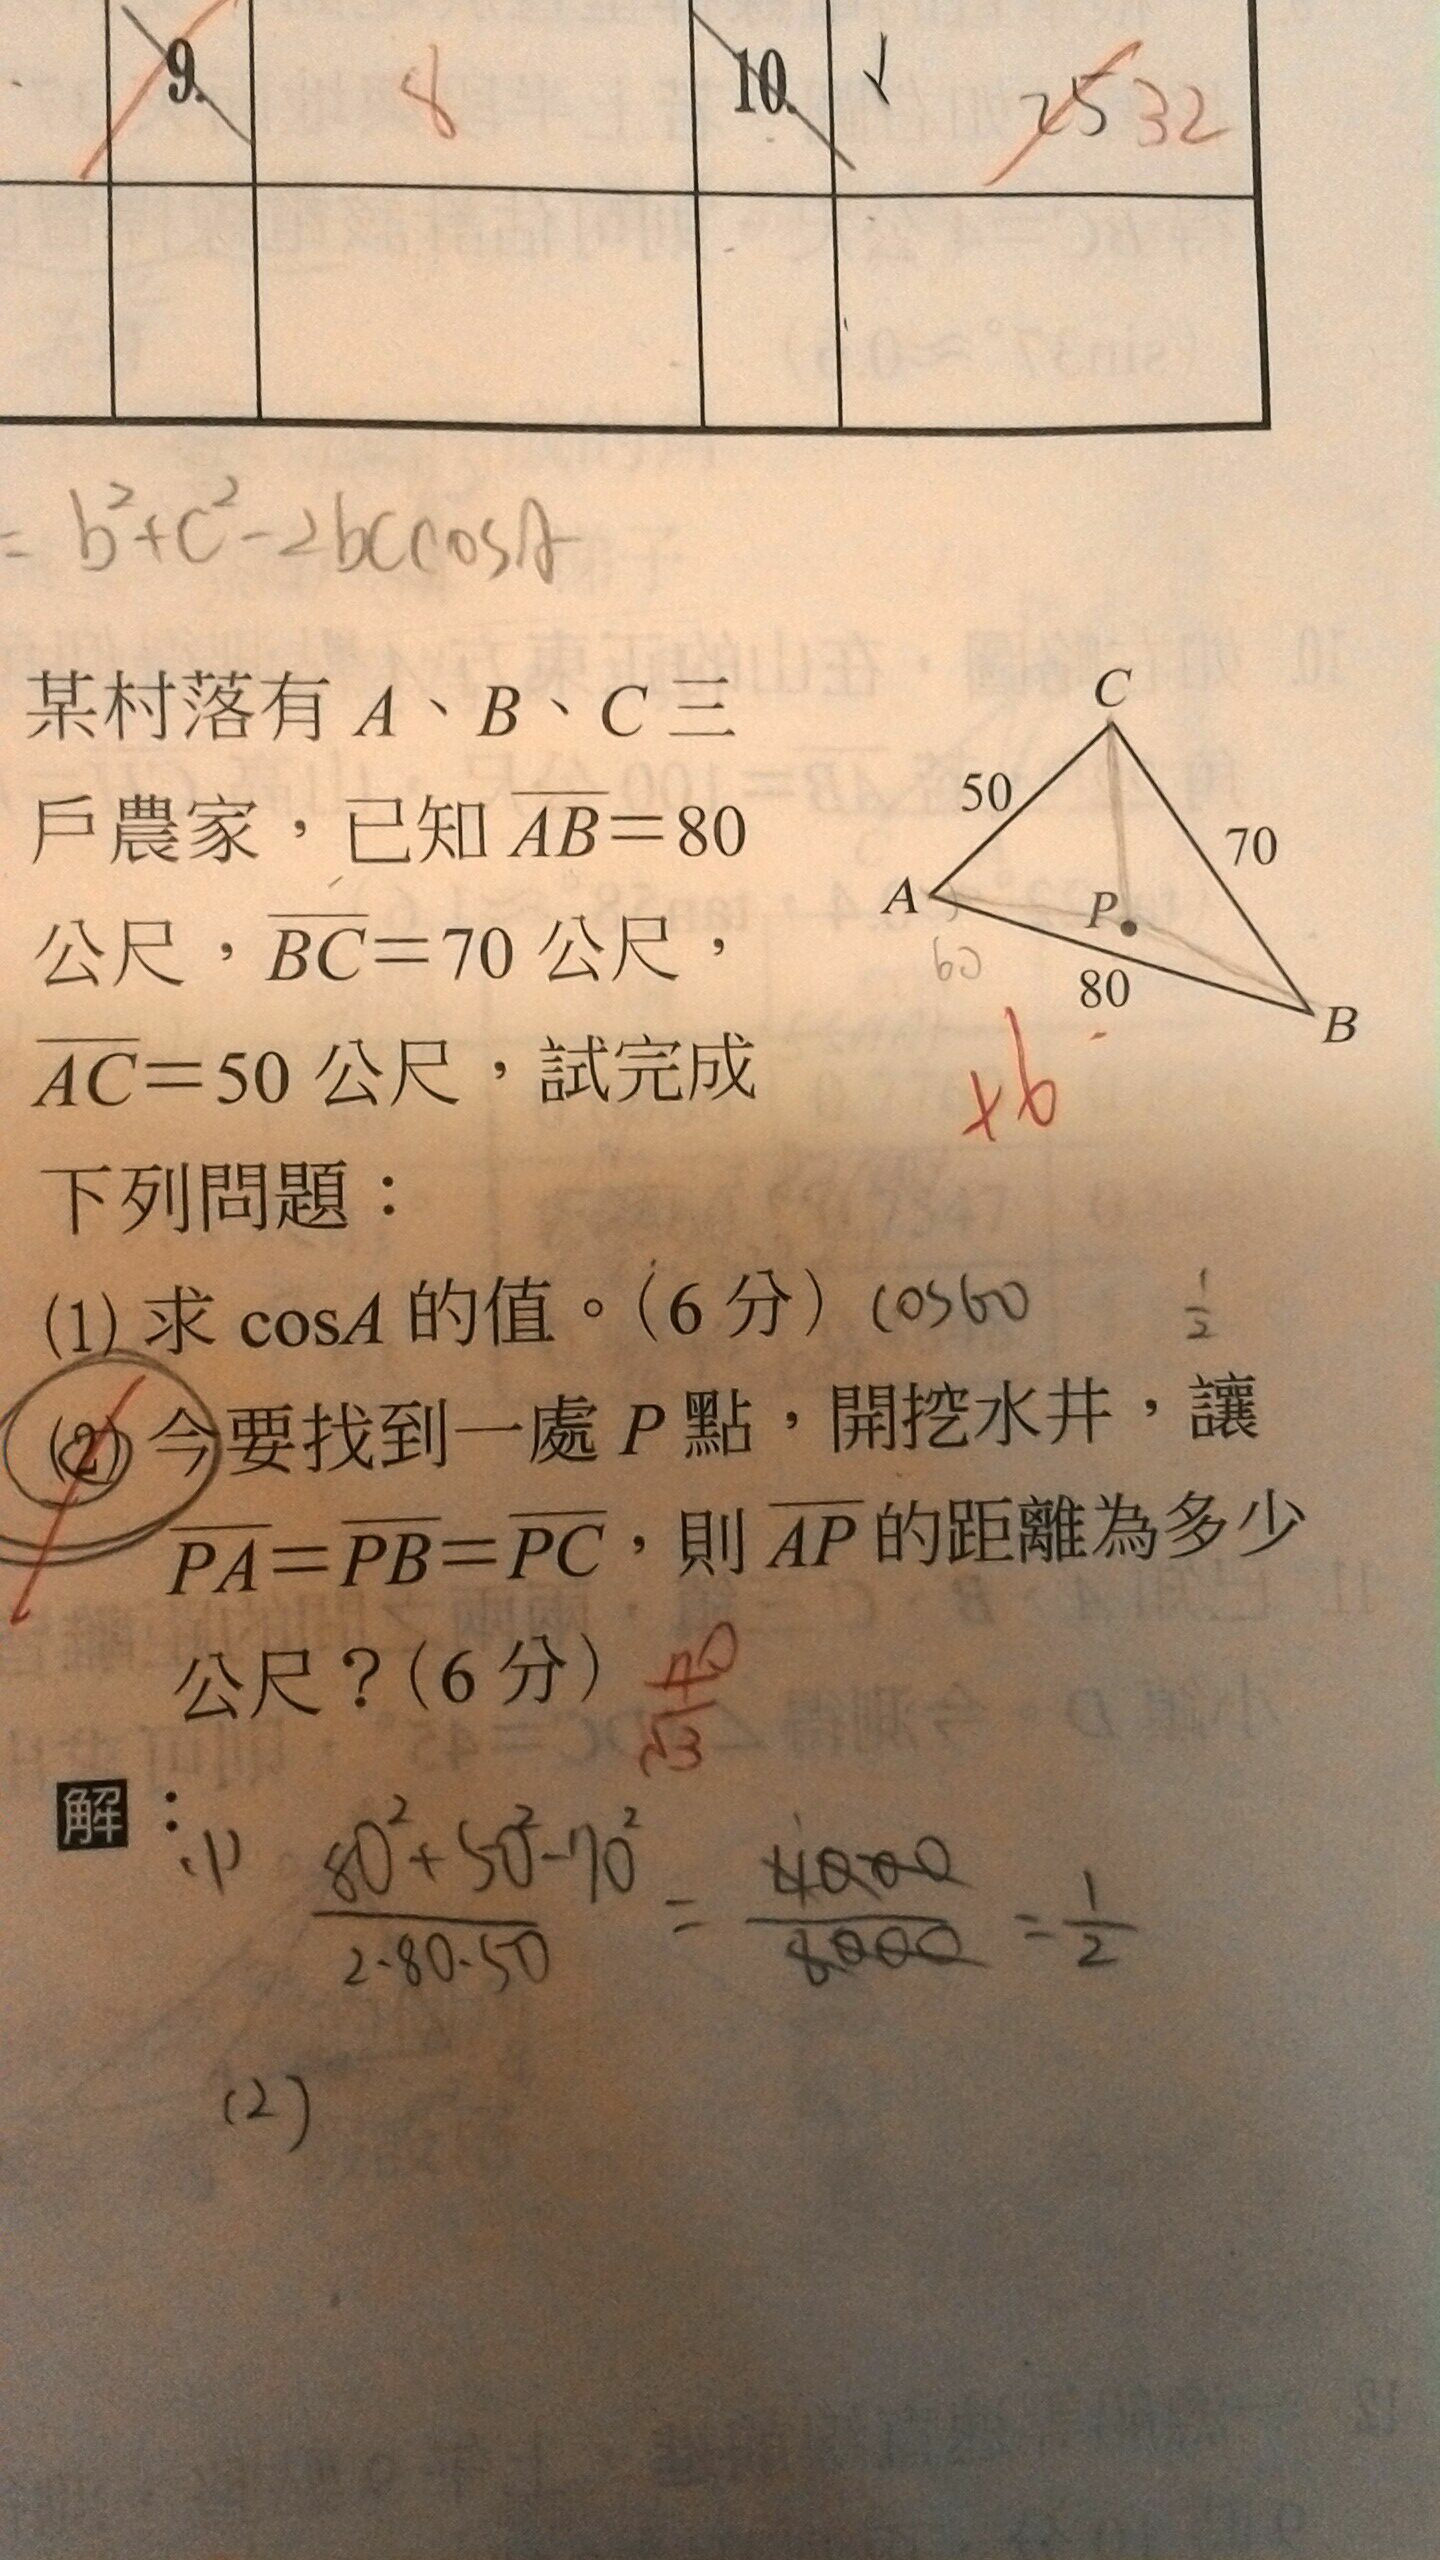 9. 8 10. ✓ 25 32
= b²+c²-2bccosA
某村落有 A、B、C 三
戶農家,已知 AB=80
公尺,BC=70 公尺,
AC=50 公尺,試完成
下列問題:
C
50
70
A
P
60
80
B
+6
(1) 求 cosA 的值。(6 分) cos60 1/2
(2) 今要找到一處 P 點,開挖水井,讓
PA=PB=PC,則 AP 的距離為多少
公尺?(6 分) 70/√3
解:
(1) (80²+50²-70²)/(2·80·50) = 4000/8000 = 1/2
(2)